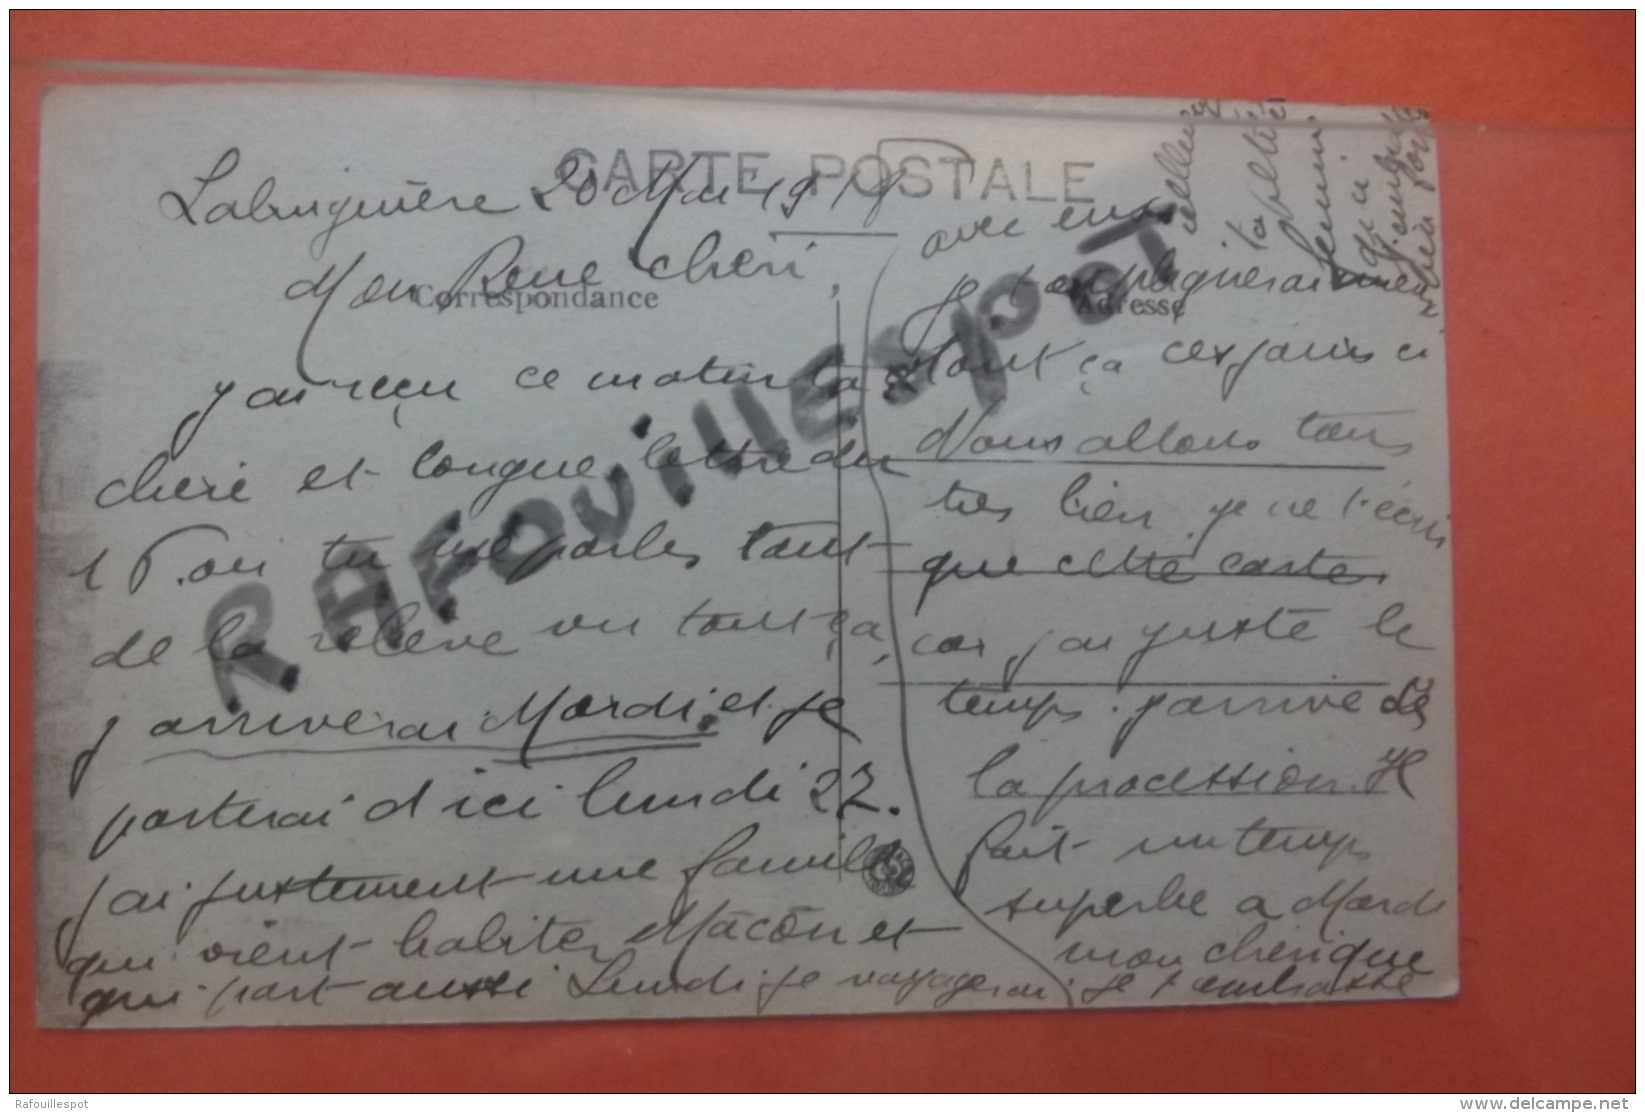 CARTE POSTALE
Labruguière 20 Mai 1918
Correspondance
Mon René chéri,
j'ai reçu ce matin ta
chère et longue lettre du
15. où tu me parles tant
de la relève ou tout ça,
j'arriverai Mardi, et je
partirai d'ici lundi 27.
j'ai justement une famille
qui vient habiter Mâcon et
qui part aussi Lundi je voyagerai
avec eux
Adresse
je t'expliquerai
tout ça ces jours ci
Nous allons tous
très bien je ne t'écris
que cette carte
car j'ai juste le
temps. j'arrive de
la procession. Il
fait un temps
superbe a Mardi
mon chéri que
je t'embrasse
bien fort
RAFOUILLESPOT
Rafouillespot
© delcampe.net